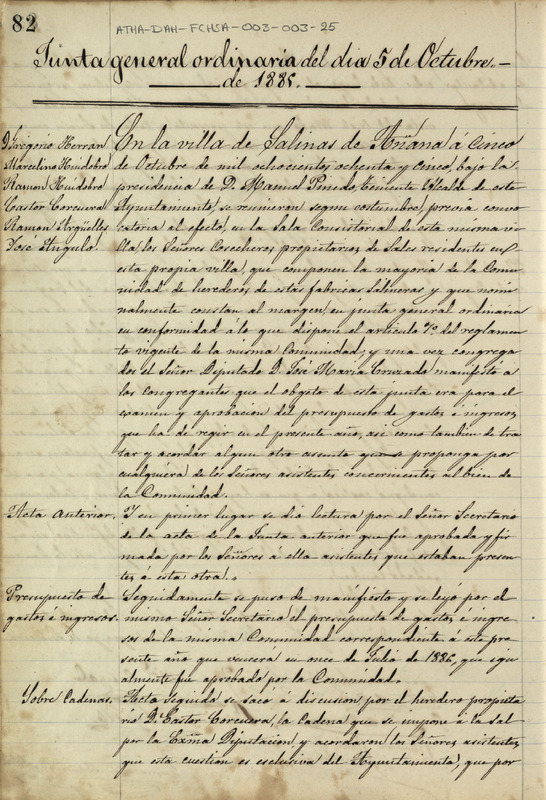 82
ATHA-DAH-FCHSA-003-003-25
Junta general ordinaria del dia 5 de Octubre.-
de 1885.
D. Gregorio Herran
Marcelino Huidobro
Ramon Huidobro
Castor Corcuera
Ramon Argüelles
Jose Angulo
En la villa de Salinas de Añana á cinco
de Octubre de mil ochocientos ochenta y cinco, bajo la
presidencia de D. Manuel Pinedo Teniente Alcalde de este
Ayuntamiento, se reunieron segun costumbre, previa convo
catoria al efecto, en la Sala Consistorial de esta misma vi
lla, los Señores Cosecheros propietarios de Sales residentes en
esta propia villa, que componen la mayoria de la Comu
nidad de herederos de estas fabricas Salineras y que nomi
nalmente constan al margen, en junta general ordinaria
en conformidad á lo que dispone el articulo 7º del reglamen
to vigente de la misma Comunidad, y una vez congrega
dos el Señor Diputado D. José Maria Cruzado manifestó á
los congregantes que el objeto de esta junta era para el
examen y aprobacion del presupuesto de gastos é ingresos,
que ha de regir en el presente año, asi como tambien de tra
tar y acordar algun otro asunto que se proponga por
cualquiera de los Señores asistentes concernientes al bien de
la Comunidad.
Acta Anterior.
Y en primer lugar se dio lectura por el Señor Secretario
de la acta de la Junta anterior que fue aprobada y fir
mada por los Señores á ella asistentes que estaban presen
tes á esta otra.
Presupuesto de
gastos é ingresos.
Seguidamente se puso de manifiesto y se leyó por el
mismo Señor Secretario el presupuesto de gastos é ingre
sos de la misma Comunidad correspondiente á este pre
sente año que vencerá en once de Julio de 1886, que igu
almente fue aprobado por la Comunidad.
Sobre Cadenas.
Acto seguido se sacó á discusion por el heredero propieta
rio D. Castor Corcuera, la Cadena que se impone á la sal
por la Exma Diputacion, y acordaron los Señores asistentes,
que esta cuestion es esclusiva del Ayuntamiento, que por